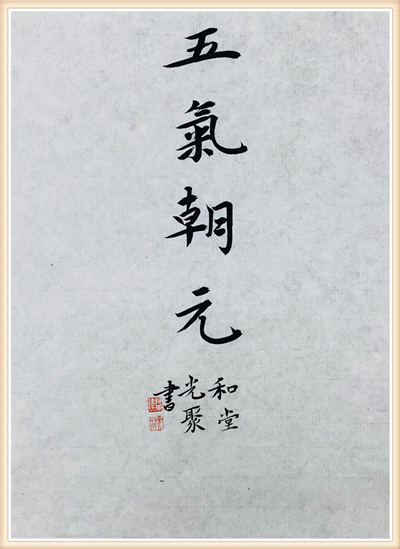 五氣朝元
和堂
光聚
書